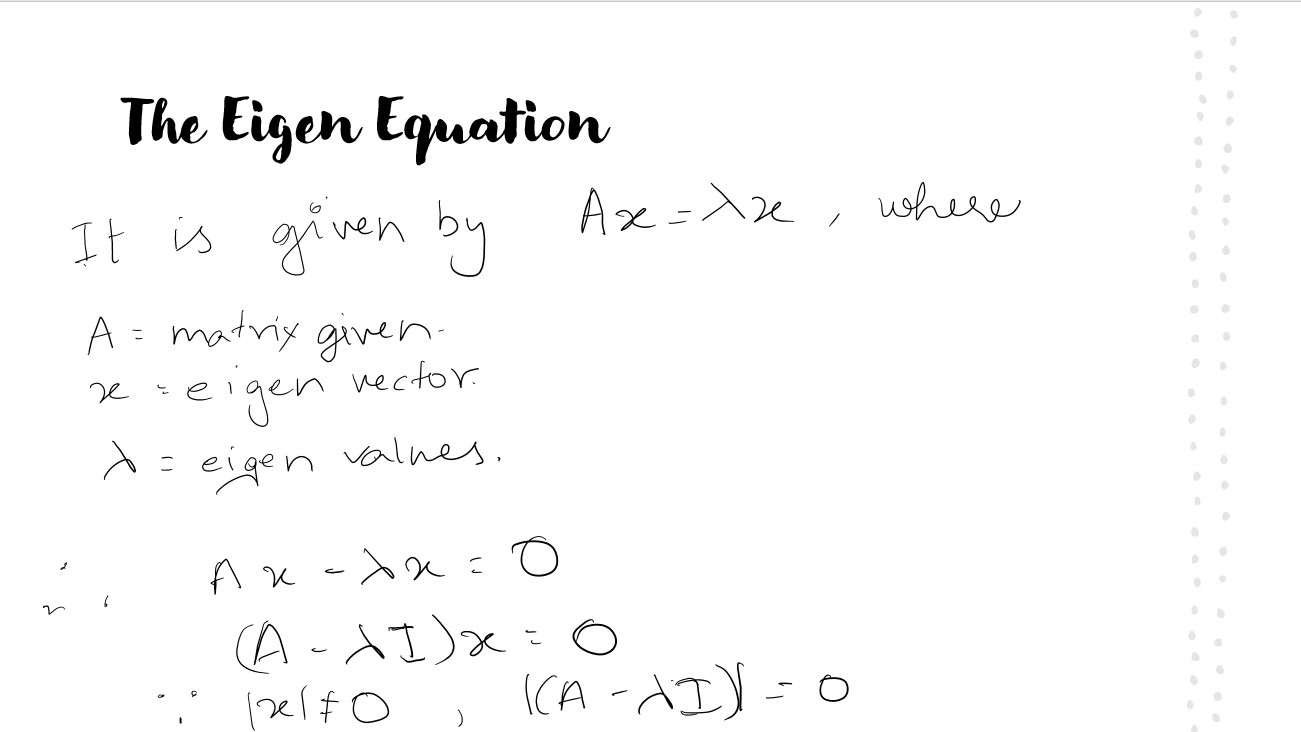 The Eigen Equation
It is given by Ax = λx , where
A = matrix given.
x = eigen vector.
λ = eigen values.
∴ Ax - λx = 0
(A - λI)x = 0
∵ |x| ≠ 0 , |(A - λI)| = 0